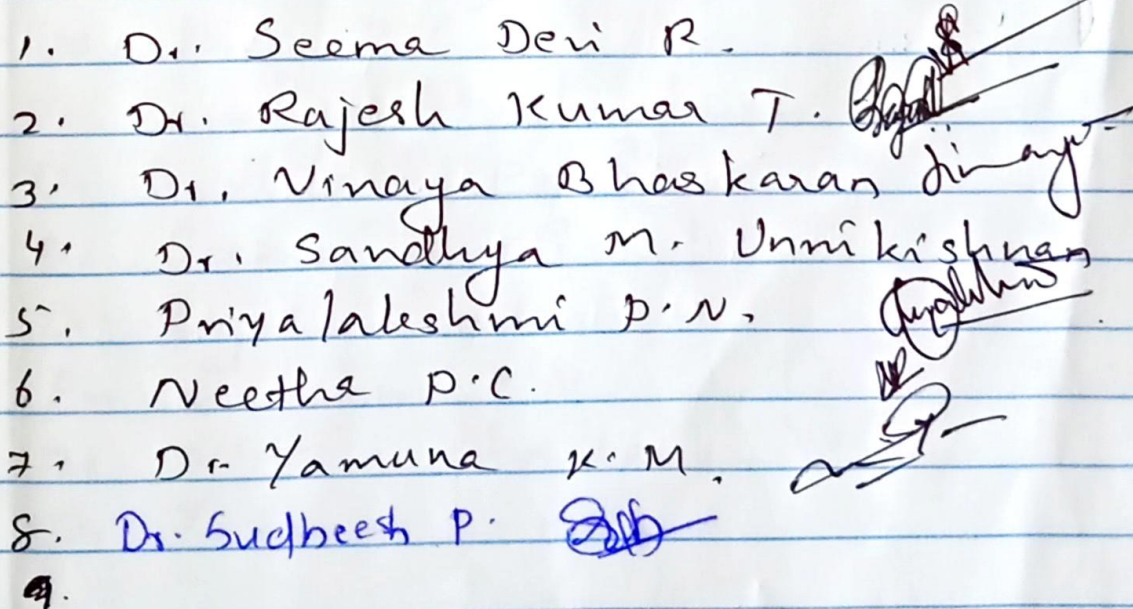 1. Dr. Seema Devi R.
2. Dr. Rajesh Kumar T.
3. Dr. Vinaya Bhaskaran
4. Dr. Sandhya M. Unnikishnan
5. Priyalakshmi P.N.
6. Neetha P.C.
7. Dr. Yamuna K.M.
8. Dr. Sudheesh P.
9.